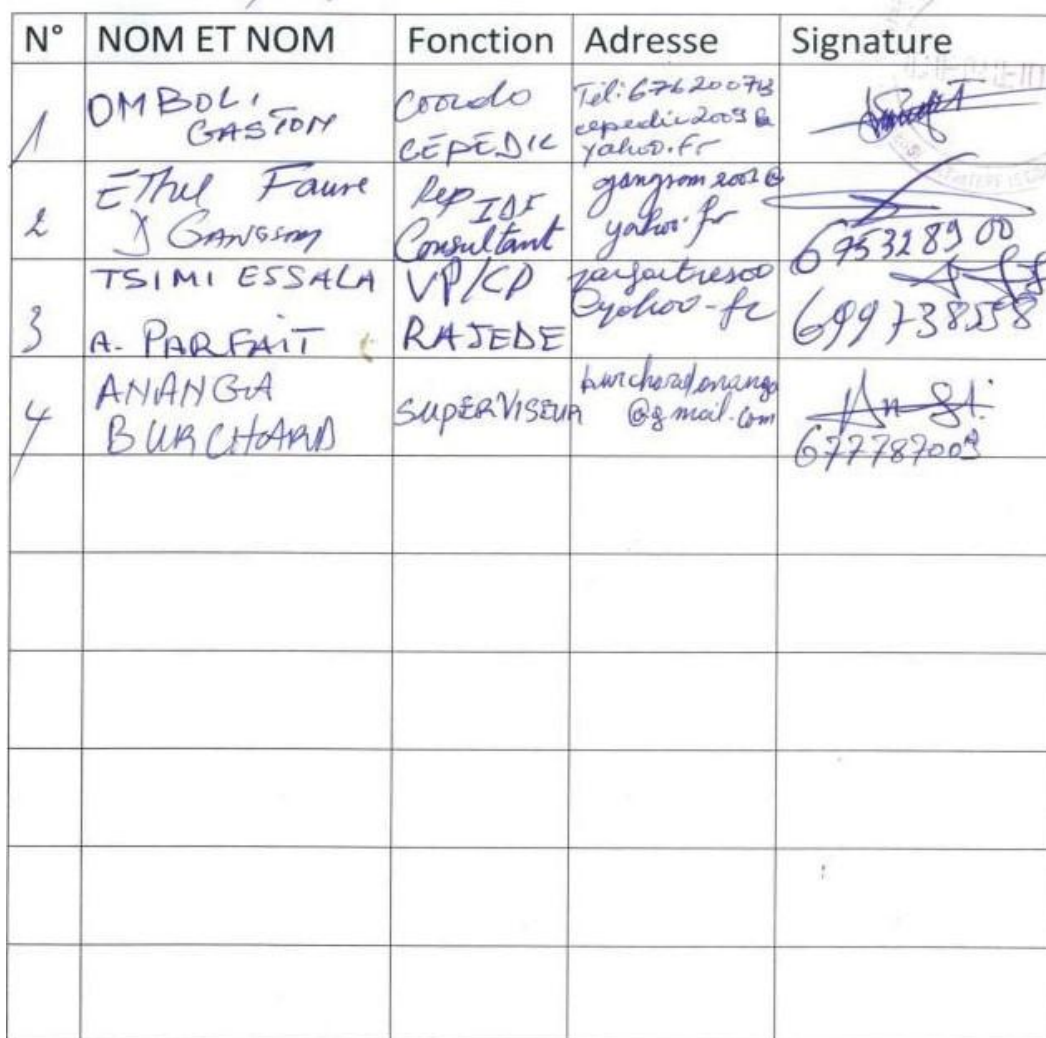 N° NOM ET NOM Fonction Adresse Signature
1 OMBOLI GASTON Coordo CEPEDIC Tél: 676200713 cepedic2009@yahoo.fr
2 Ethel Faure GANGSOM Rep IDF Consultant gangsom2002@yahoo.fr 675328900
3 TSIMI ESSALA A. PARFAIT VP/CP RAJEDE @yahoo.fr 699738558
4 ANANGA BURCHARD SUPERVISEUR burchardananga@gmail.com 677787009